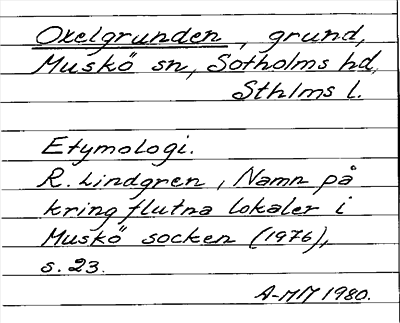 Oxelgrunden, grund,
Muskö sn, Sotholms hd,
Sthlms l.
Etymologi.
R. Lindgren, Namn på
kringflutna lokaler i
Muskö socken (1976),
s. 23.
A-MM 1980.